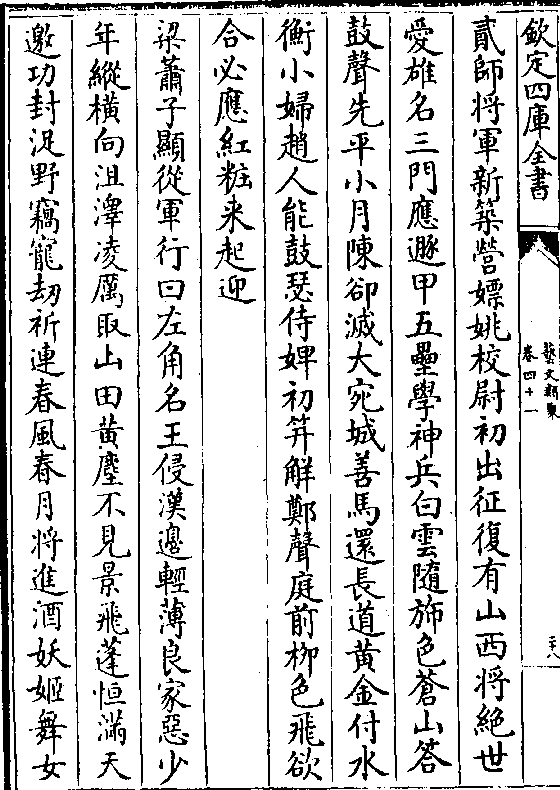 欽定四庫全書
藝文類聚
卷四十一
貳師將軍新築營嫖姚校尉初出征復有山西將絶世
愛雄名三門應遯甲五壘學神兵白雲随斾色蒼山答
鼓聲先平小月陳卻滅大宛城善馬還長道黄金付水
衡小婦趙人能鼓瑟侍婢初笄解鄭聲庭前栁色飛欲
合必應紅粧来起迎
梁蕭子顯從軍行曰左角名王侵漢邉輕薄良家惡少
年縱横向沮澤凌厲取山田黄塵不見景飛蓬恒滿天
邀功封浞野竊寵刼祈連春風春月将進酒妖姬舞女